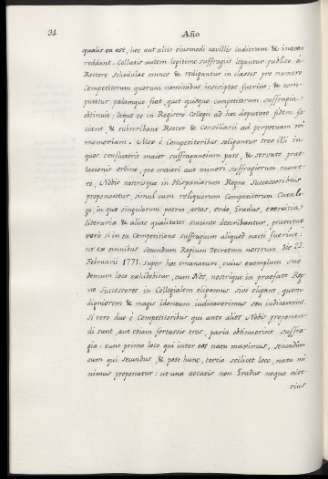 34 Año
qualis ea est, hec aut aliis eiusmodi cavillis iudicium & invere
reddant. Collatis autem legitime suffragiis legantur publice, a
Rectore schedulae nuncr & redigantur in classes pro numero
Competitorum quorum nominibus inscriptae fuerint; & com-
putetur palamque fiat, quot quisque Competitorum suffragia
obtinuit; idque in Registro Collegii ad hec deputato fidem fa
ciatur, & subscribant Rector & Consiliarii ad perpetuam rei
memoriam. Mox è Competitoribus seligantur tres illi in
quos confluxerit maior suffragiorum pars, & servato prae
laturae ordine, pro maiori aut minori suffragiorum nume
ro, Nobis nostrisque in Hispaniarum Regno Successoribus
proponantur, simul cum reliquorum Competitorum Catalo
go, in quo singulorum patria, aetas, ordo, Gradus, exercitia
literaria & aliae qualitates sincere describantur, praesertim
vero si in ea Competitione suffragium aliquod nacti fuerint
ut ex omnibus secundum Regium Decretum nostrum die 22
Februarii 1771. super hoc emanatum, cuius exemplum suo
demum loco exhibebitur, tum Nos, nostrique in praefato Reg
no Successores in Collegialem eligemus sive eligant, quem
digniorem & magis idoneum iudicaverimus seu iudicaverint.
Si vero duo è Competitoribus qui ante alios Nobis proponen
di sunt, aut etiam fortassis tres, paria obtinuerint suffra
gia: tum primo loco qui inter eos natu maximus, secundum
cum qui secundus & post hunc, tertio scilicet loco, natu mi
nimus proponatur: ut una aetatis non Gradus neque alte
rius